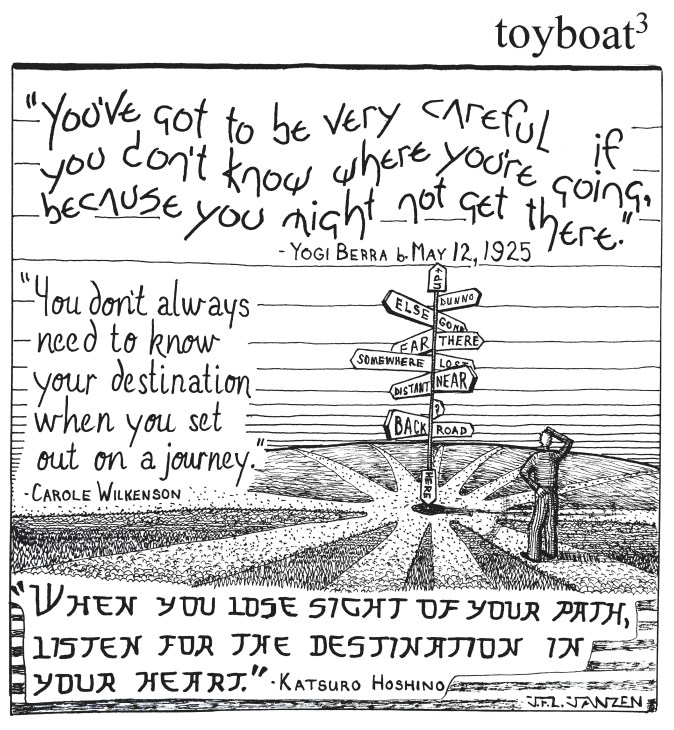 toyboat³
"You've got to be very careful if
you don't know where you're going,
because you might not get there."
- Yogi Berra b. May 12, 1925
"You don't always
need to know
your destination
when you set
out on a journey."
- Carole Wilkenson
UP↑
ELSE
DUNNO
GONE
FAR
THERE
SOMEWHERE
LOST
DISTANT
NEAR
?
BACK
ROAD
HERE
"When you lose sight of your path,
listen for the destination in
your heart." - Katsuro Hoshino
J.F.L. Janzen